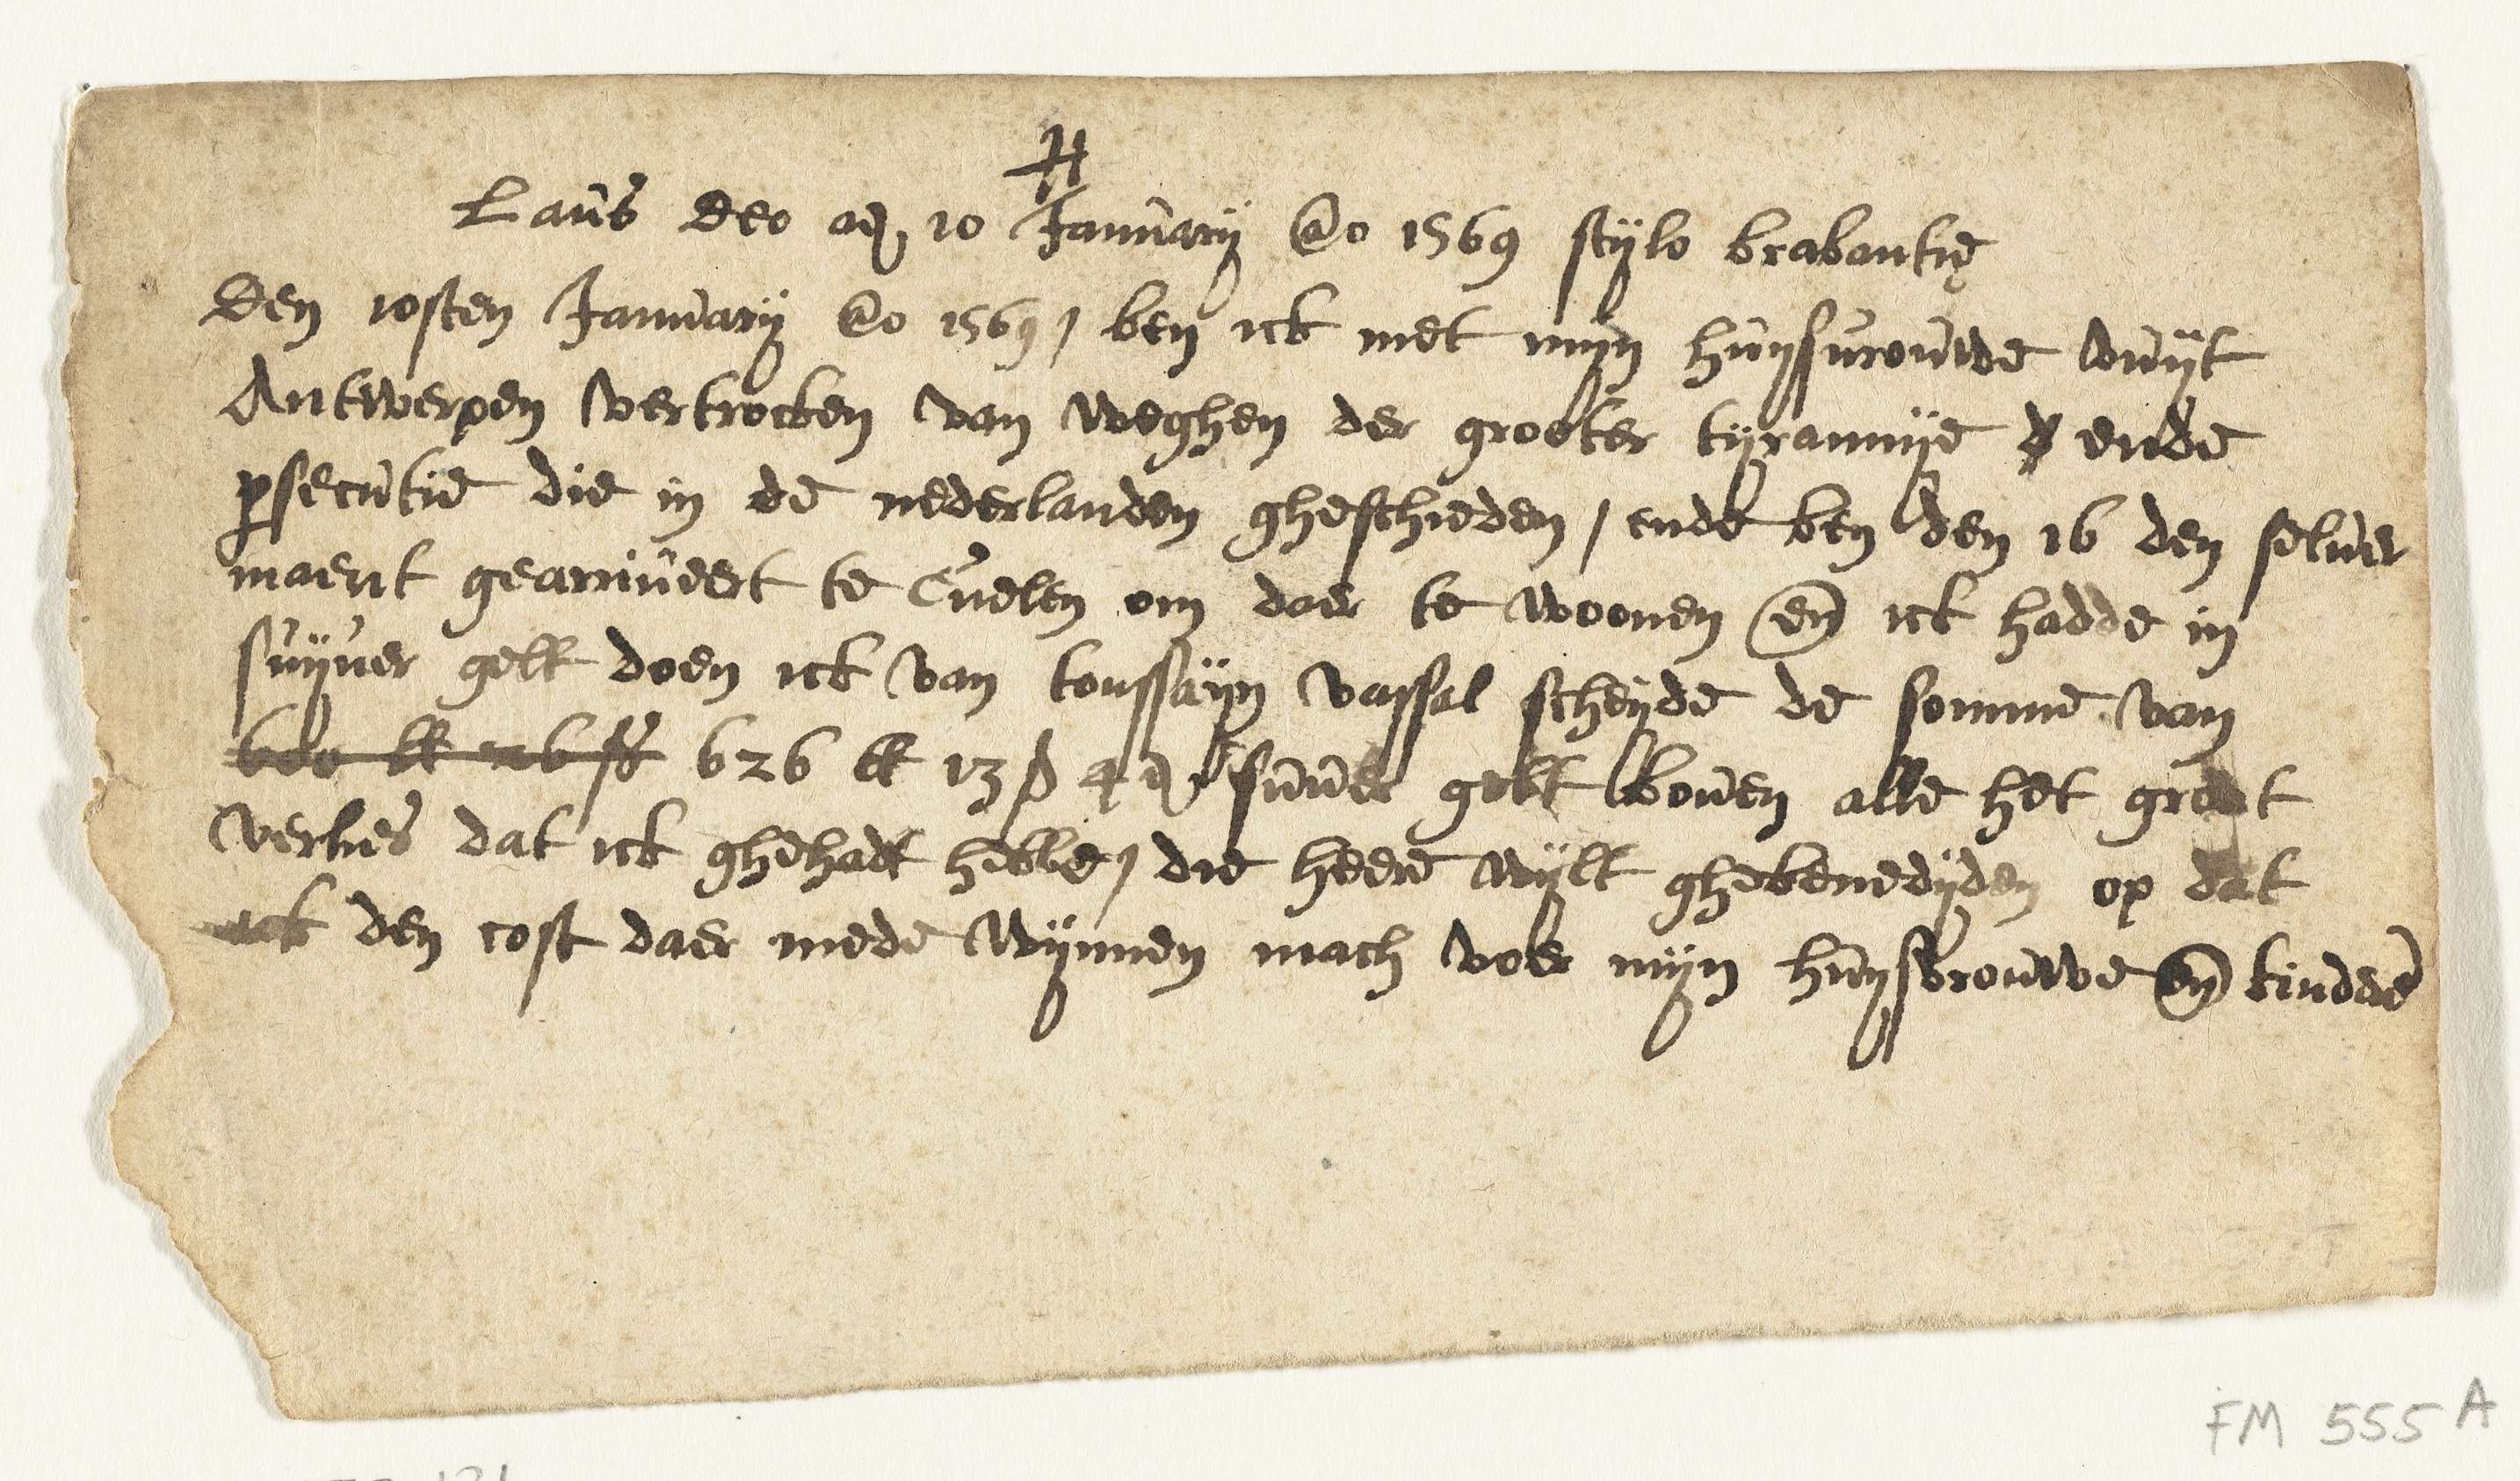 Laus deo ady 10 January @o 1569 stylo brabantie
Den 10sten January @o 1569 / ben ick met myn huysvrouwe wuyt
Antwerpen vertrocken van weghen der grooter tyrannye ende
persecutie die in de nederlanden gheschieden / ende ben den 16 den selver
maent gearriveert te Cuelen om daer te woonen en ick hadde in
suyver gelt doen ick van toussayn vassal scheyde de somme van
626 lt 13 ß 4 suver gelt boven alle het groot
verlies dat ick ghehadt hebbe / die heere wylt ghebenedyden op dat
ick den cost daer mede wynnen mach voer myn huysvrouwe en kindere
FM 555 A